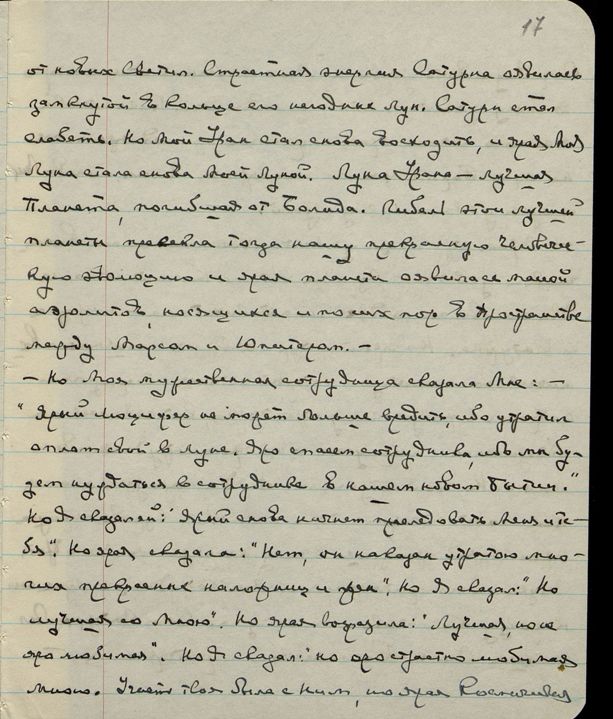 17
от новых Светил. Страстная энергия Сатурна оявилась
замкнутой в кольце его негодных лун. Сатурн стал
слабеть. Но мой Уран стал снова восходить, и ярая моя
Луна стала снова моей Луной. Луна Урана — лучшая
Планета, погибшая от Болида. Гибель этой лучшей
планеты прервала тогда нашу прекрасную человече-
скую эволюцию и ярая планета оявилась массой
аэролитов, носящихся и по сих пор в пространстве
между Марсом и Юпитером. —
— Но Моя мужественная сотрудница сказала Мне: —
"Ярый Люцифер не может больше вредить, ибо утратил
оплот свой в луне. Яро спасем сотрудника, ибо мы бу-
дем нуждаться в сотруднике в нашем новом бытии."
Но Я сказал ей: "Ярый снова начнет преследовать Меня и те-
бя". Но ярая сказала: "Нет, он наказан утратою мно-
гих прекрасных наложниц и жен". Но Я сказал: "Но
лучшая со Мною". Но ярая возразила: "Лучшая, но не
яро любимая". Но Я сказал: "но яро страстно любимая
Мною. Участь твоя была с ним, но ярая Космическая